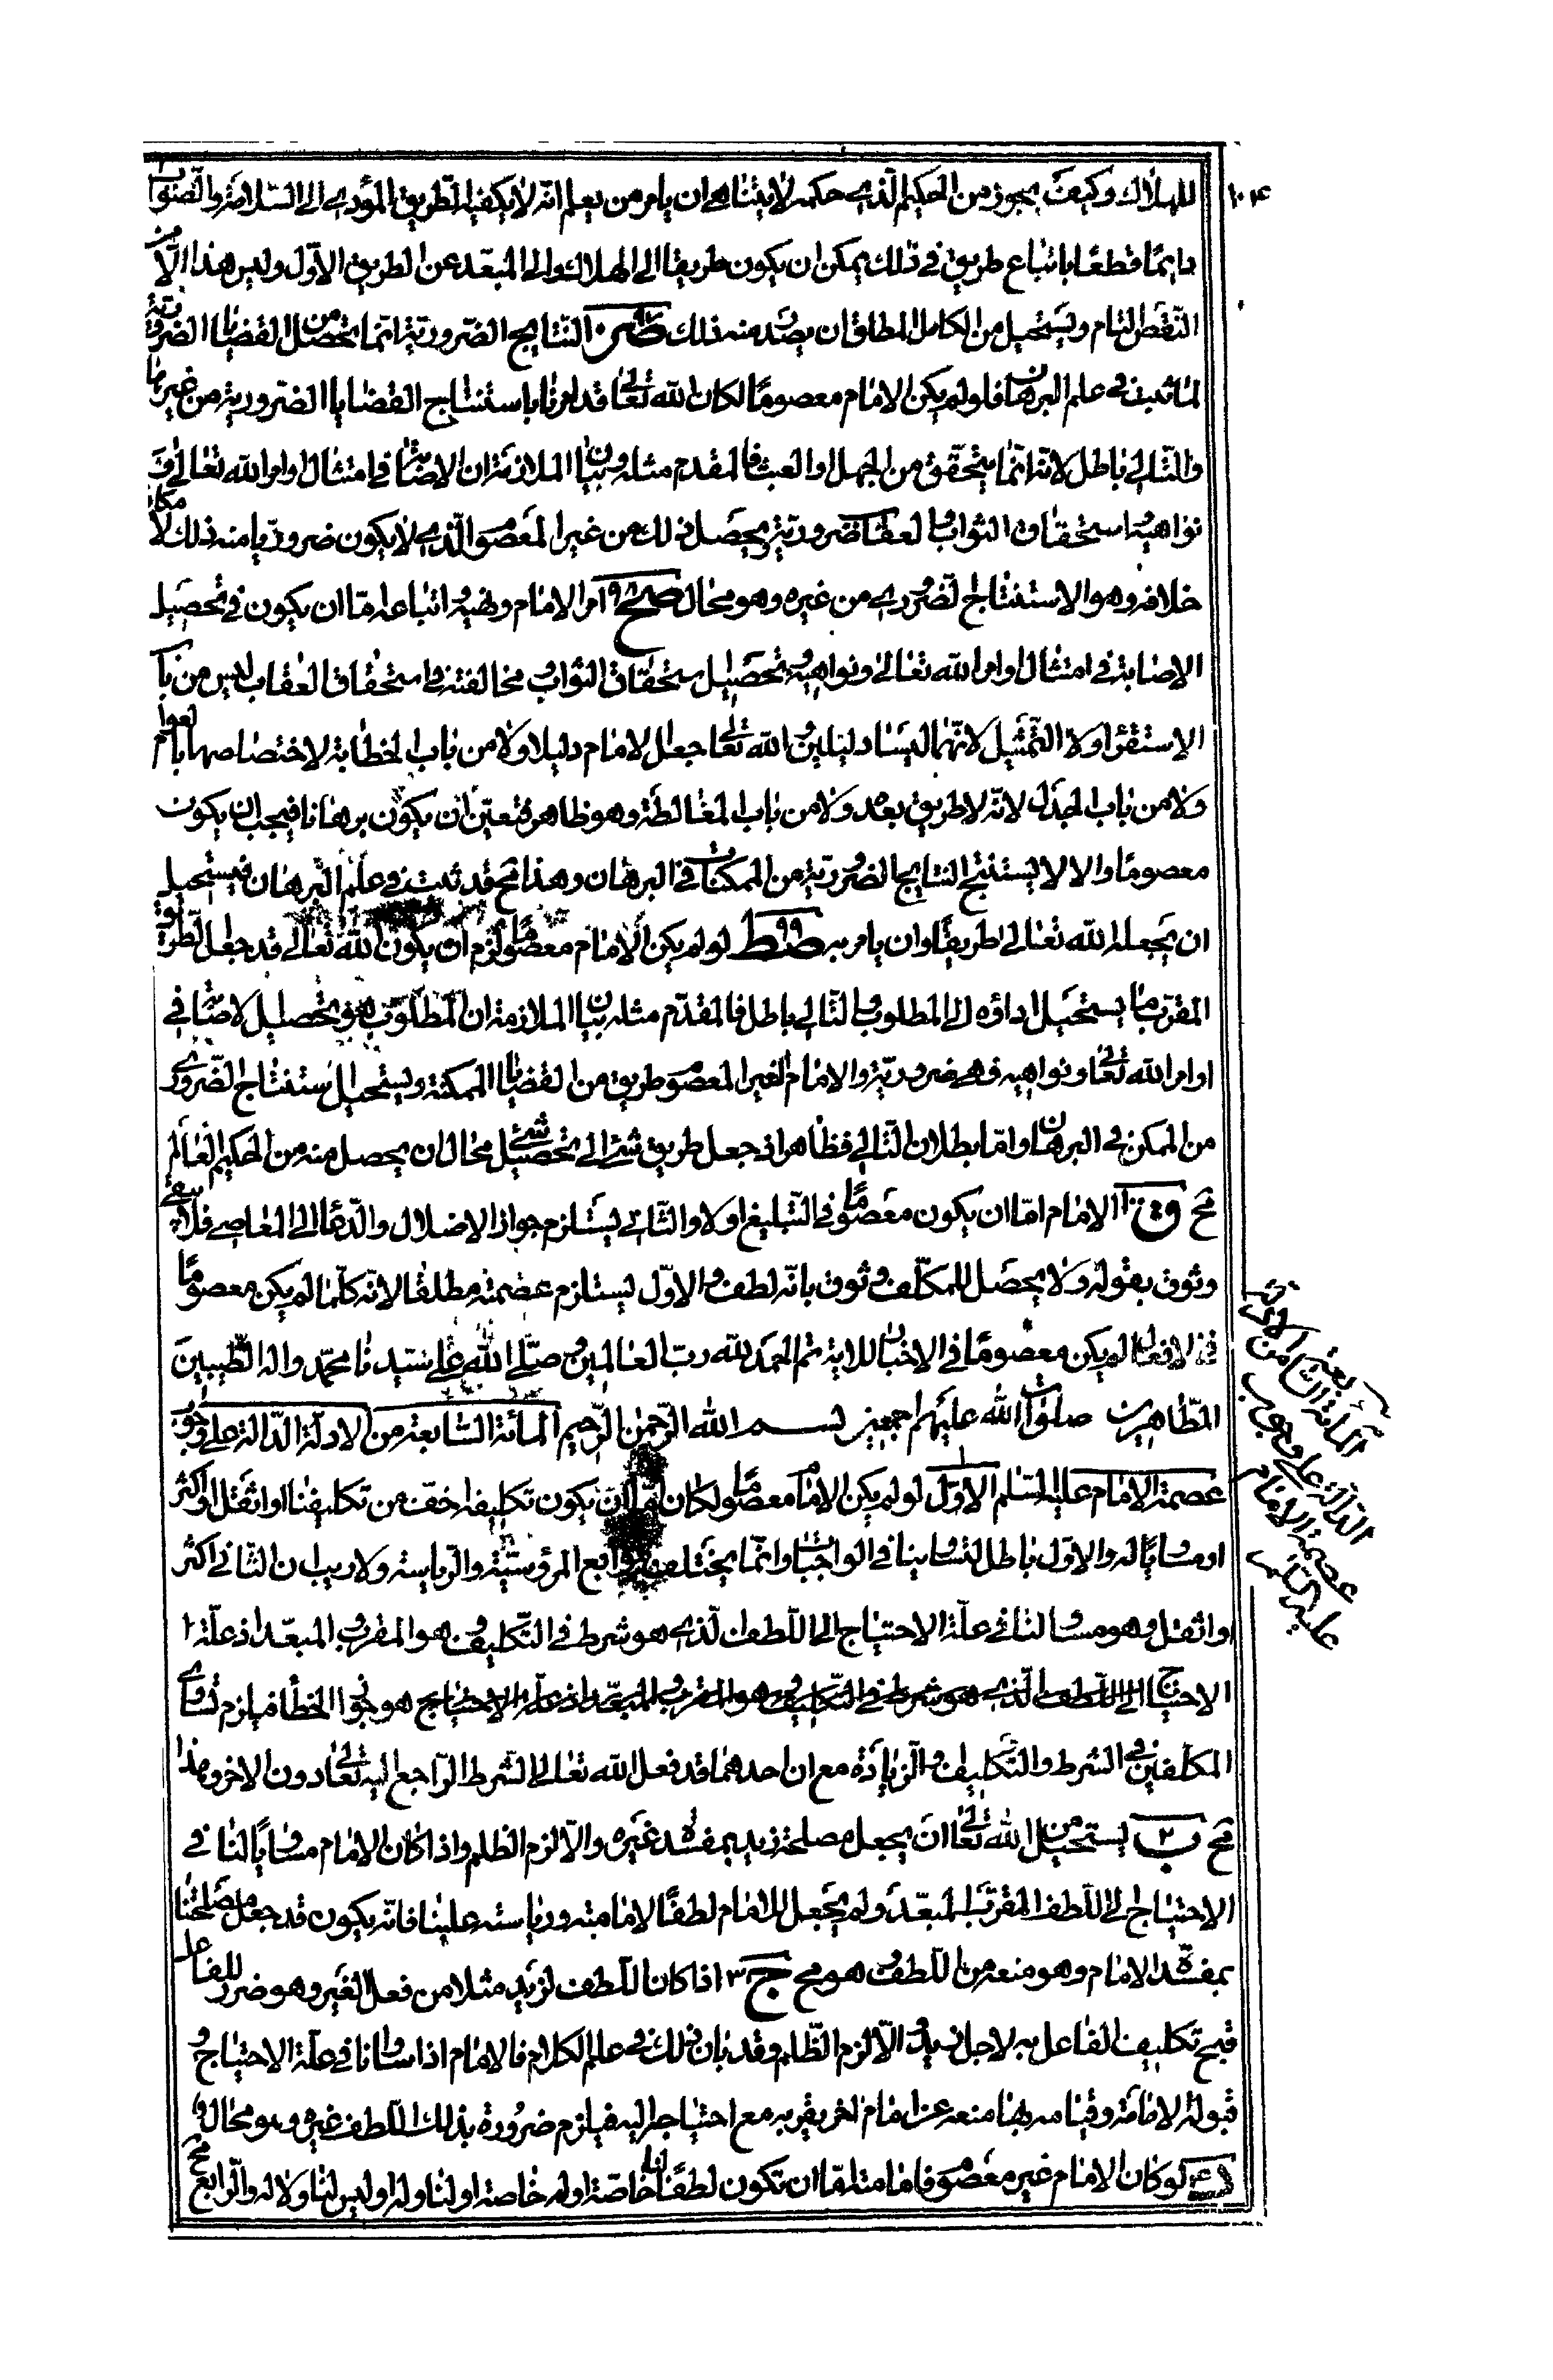 ١٠٤
للهلاك وكيف يجوز من الحكيم الذى حكمه لا يتناهى ان يامر من يعلم انه لا يكفيه الطريق المؤدى الى السلامة والصواب
دايما قطعا باتباع طريق فى ذلك يمكن ان يكون طريقا الى الهلاك والى المبعد عن الطريق الاول وليس هذا الا من
النقص التام ويستحيل من الكامل المطلق ان يصدر منه ذلك صز ٩٧ النتايج الضرورية انما تحصل من القضايا الضرورية
لما ثبت فى علم البرهان فلو لم يكن الامام معصوما لكان الله تعالى قد امرنا باستنتاج القضايا الضرورية من غيرها
والتالى باطل لانه انما يتحقق من الجهل او العبث فالمقدم مثله وبيان الملازمة ان الاصابة فى امتثال اوامر الله تعالى و
نواهيه استحقاق الثواب والعقاب ضرورية ويحصل ذلك من غير المعصوم الذى لا يكون ضروريا منه ذلك لامكان
خلافه وهو الاستنتاج الضرورى من غيره وهو محال صح ٩٨ امر الامام ونهيه واتباعه اما ان يكون فى تحصيل
الاصابة فى امتثال اوامر الله تعالى ونواهيه وتحصيل استحقاق الثواب وفى مخالفته استحقاق العقاب ليس من باب
الاستقراء ولا التمثيل لانهما ليسا دليلين والله تعالى جعل الامام دليلا ولا من باب الخطابة لاختصاصها بالعوام
ولا من باب الجدل لانه لا طريق بعده ولا من باب المغالطة وهو ظاهر فتعين ان يكون برهانا فيجب ان يكون
معصوما والا لا يستنتج النتايج الضرورية من الممكنات فى البرهان وهذا مح قد ثبت فى علم البرهان فيستحيل
ان يجعله الله تعالى طريقا وان يامر به صط ٩٩ لو لم يكن الامام معصوما لزم ان يكون الله تعالى قد جعل الطريق
المقرب ما يستحيل اداؤه الى المطلوب والتالى باطل فالمقدم مثله بيان الملازمة ان المطلوب هو تحصيل الاصابة فى
اوامر الله تعالى ونواهيه فهى ضرورية والامام الغير المعصوم طريق من القضايا الممكنة ويستحيل استنتاج الضرورى
من الممكن فى البرهان واما بطلان التالى فظاهر اذ جعل طريق شئ الى تحصيل شئ محال ان يحصل منه من الحكيم العالم
مح ق ١٠٠ الامام اما ان يكون معصوما فى التبليغ اولا والثانى يستلزم جواز الاضلال والدعاء الى المعاصى فلا يبقى
وثوق بقوله ولا يحصل للمكلف وثوق بانه لطف والاول يستلزم عصمته مطلقا لانه كلما لم يكن معصوما
فى الافعال لم يكن معصوما فى الاخبار للاية تم الحمد لله رب العالمين وصلى الله على سيدنا محمد واله الطيبين
الطاهرين صلوات الله عليهم اجمعين بسم الله الرحمن الرحيم المائة السابعة من الادلة الدالة على وجوب
عصمة الامام عليه السلم الاول لو لم يكن الامام معصوما لكان اما ان يكون تكليفه اخف من تكليفنا او اثقل او اكثر
او مساويا له والاول باطل لتساوينا فى الواجبات وانما يختلف توابع المرؤسية والرياسة ولا ريب ان الثانى اكثر
واثقل وهو مساو لنا فى علة الاحتياج الى اللطف الذى هو شرط فى التكليف وهو المقرب والمبعد اذ علة
الاحتياج الى اللطف الذى هو شرط فى التكليف وهو المقرب والمبعد اذ علة الاحتياج هو جواز الخطأ فيلزم تساوى
المكلفين فى الشرط والتكليف والزيادة مع ان احدهما قد فعل الله تعالى الشرط الراجع اليه تعالى دون الاخر وهذا
مح ب ٢ يستحيل من الله تعالى ان يجعل مصلحة زيد بمفسدة غيره والا لزم الظلم واذا كان الامام مساويا لنا فى
الاحتياج الى اللطف المقرب المبعد ولم يجعل للامام لطفا لامامته ورياسته علينا فانه يكون قد جعل مصلحتنا
بمفسدة الامام وهو منعه من اللطف وهو مح ج ٣ اذا كان اللطف لزيد مثلا من فعل الغير وهو ضرر للفاعل
قبح تكليف الفاعل به لاجل زيد والا لزم الظلم وقد بان ذلك فى علم الكلام فالامام اذا ساوانا فى علة الاحتياج و
قبوله الامامة وقيامه بها منعه عن امام اخر يقربه مع احتياجه اليه فيلزم ضرورة بذلك اللطف غيره وهو محال و
د ٤ لو كان الامام غير معصوم فامامته اما ان تكون لطفا لنا خاصة اوله خاصة او لنا وله او ليس لنا ولا له والرابع مح
المائة الثامنة من
الدالة على وجوب
عصمة الامام